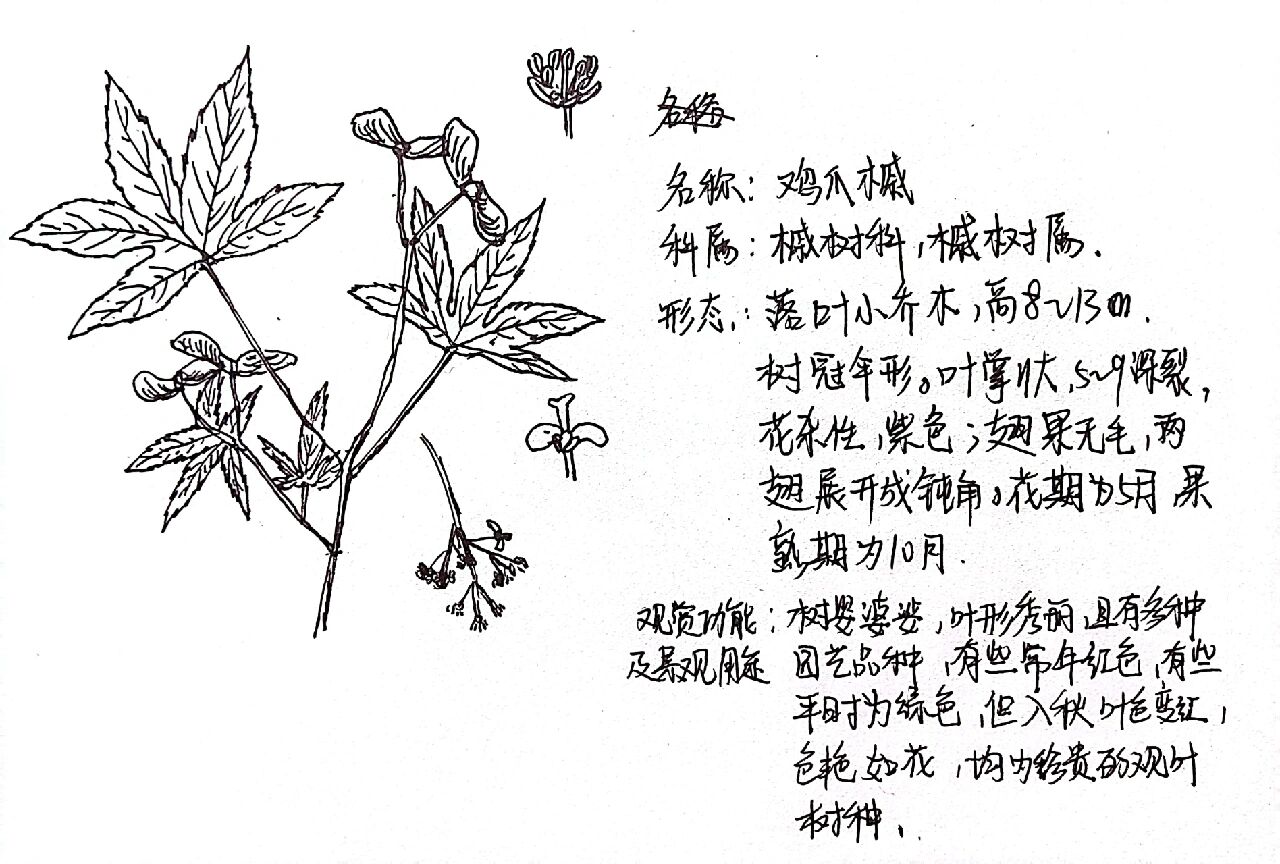 名称
名称：鸡爪槭
科属：槭树科，槭树属．
形态：落叶小乔木，高8~13m．
树冠伞形。叶掌状，5~9深裂，
花杂性，紫色；翅果无毛，两
翅展开成钝角。花期为5月，果
熟期为10月．
观赏功能及景观用途：树婆娑，叶形秀丽，且有多种
园艺品种，有些常年红色，有些
平时为绿色，但入秋叶色变红，
色艳如花，均为珍贵的观叶
树种．